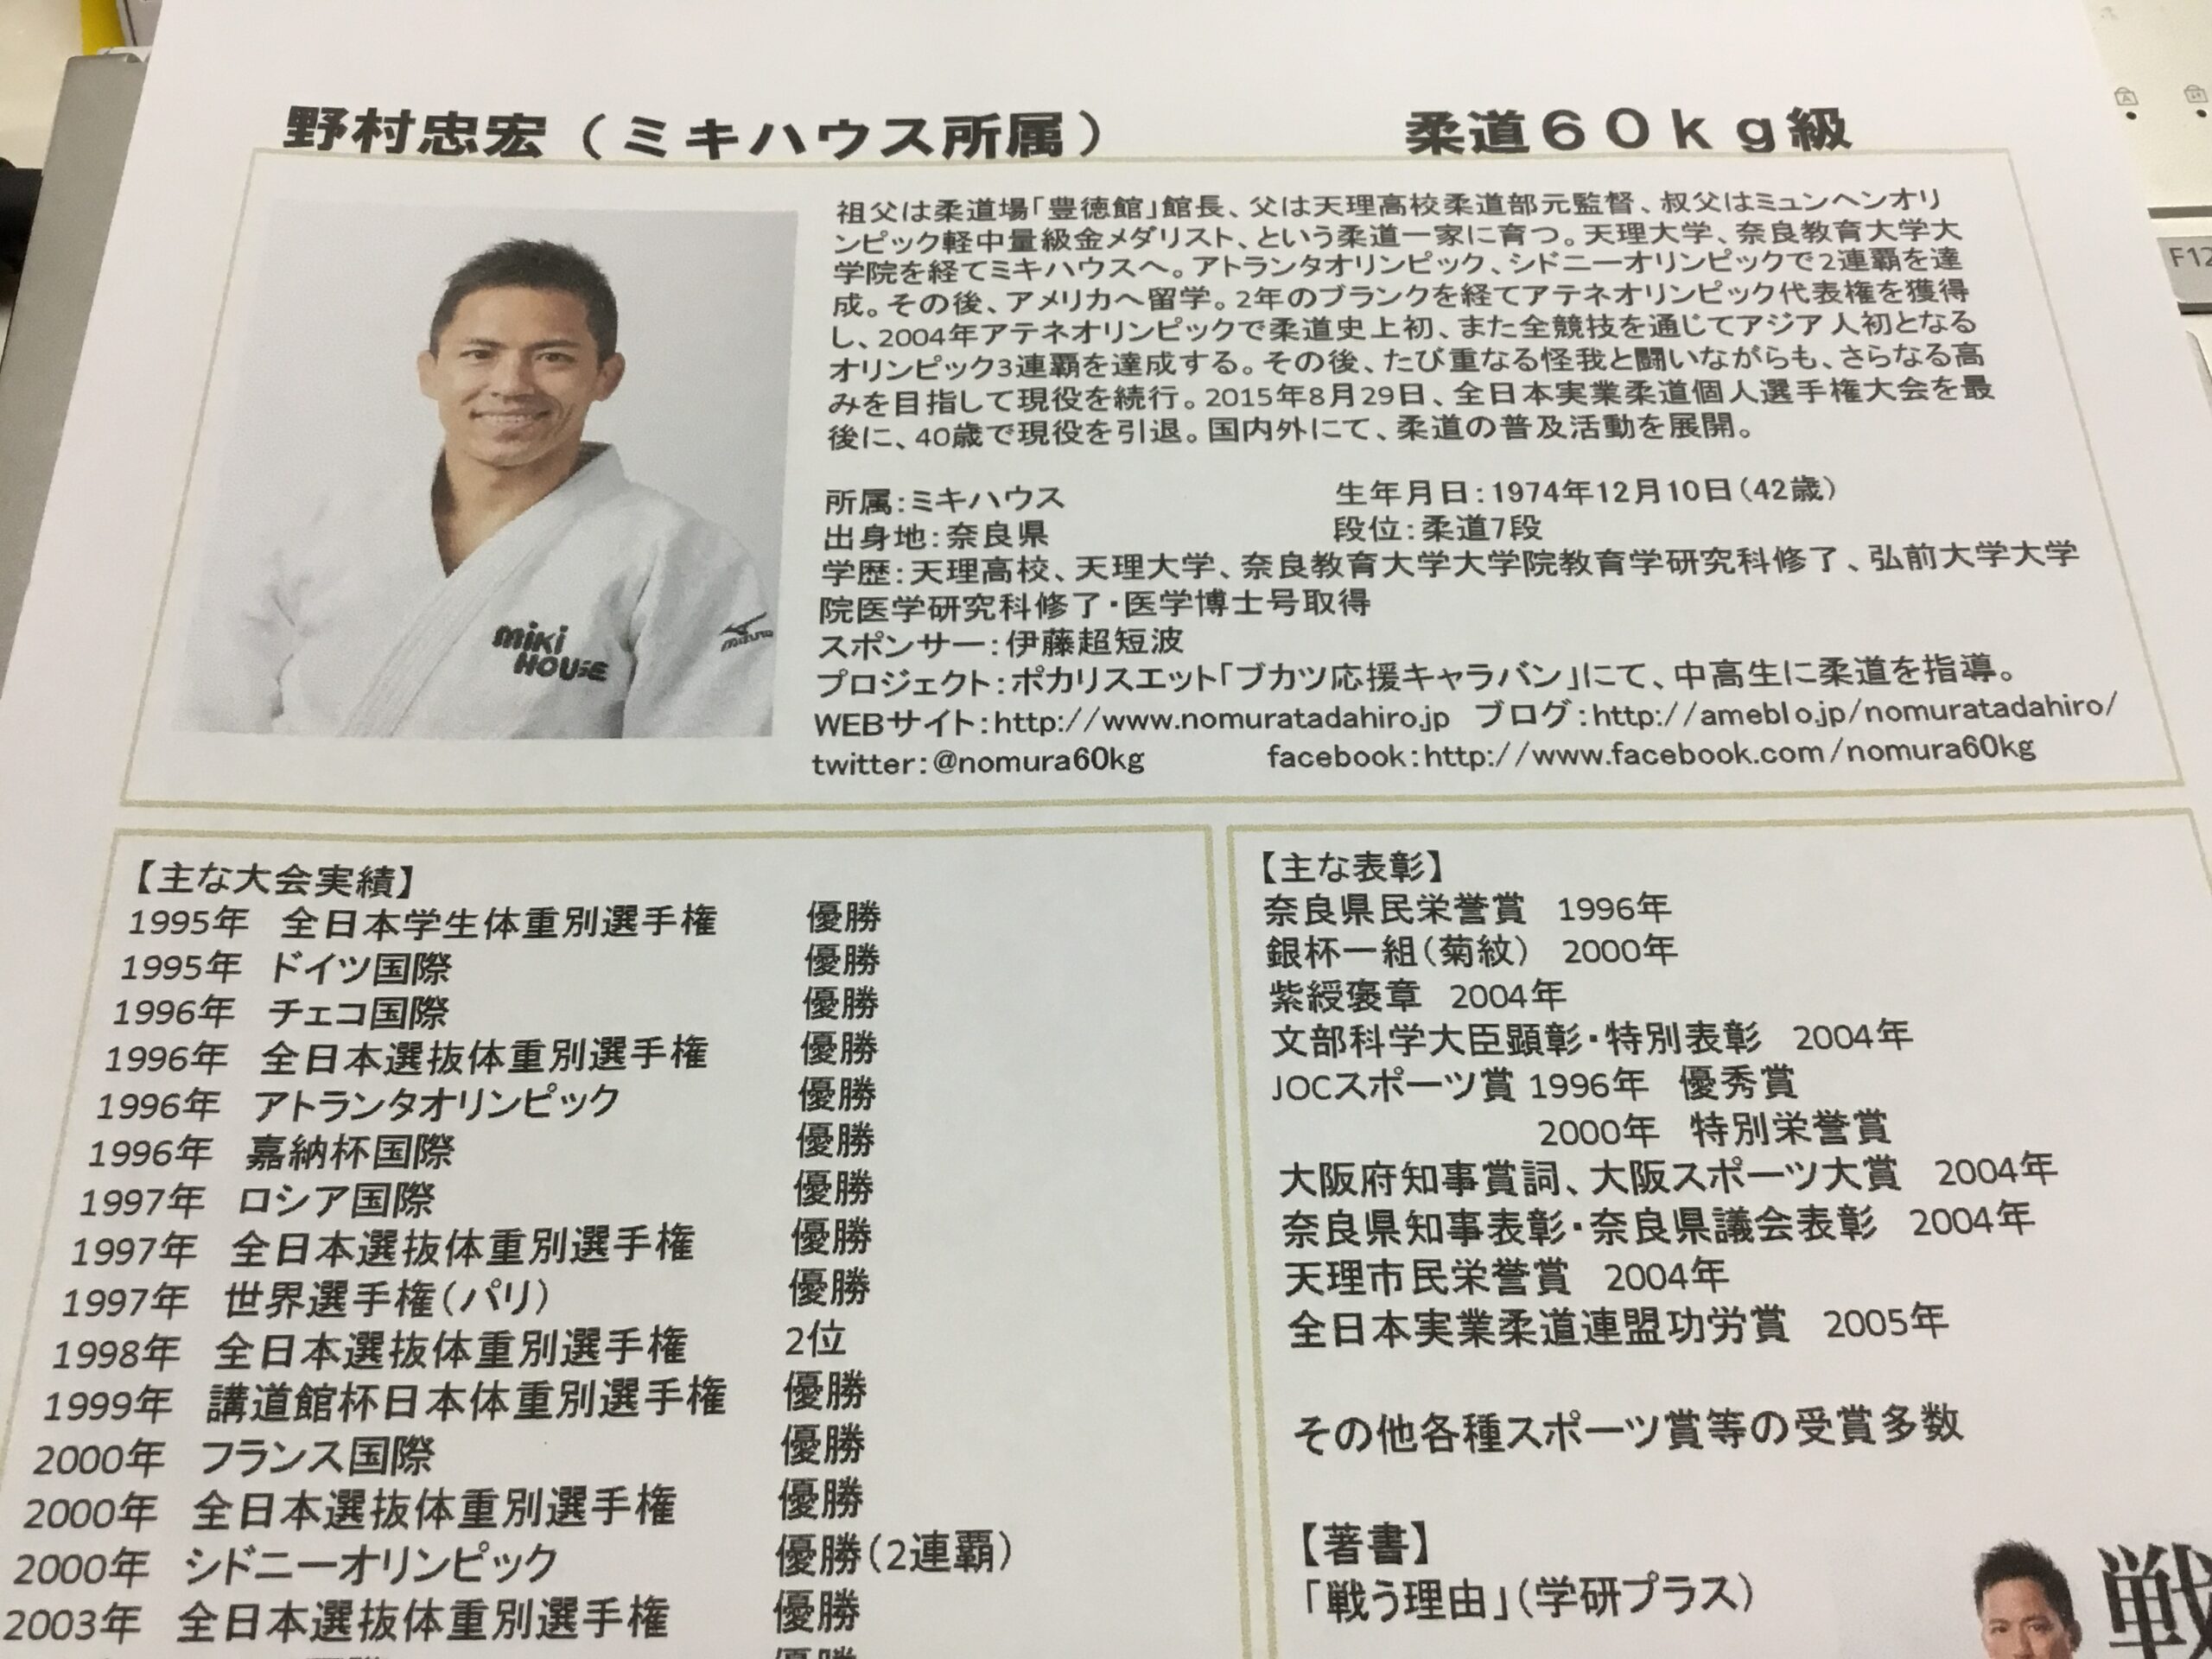 野村忠宏（ミキハウス所属）　柔道６０ｋｇ級
祖父は柔道場「豊徳館」館長、父は天理高校柔道部元監督、叔父はミュンヘンオリ
ンピック軽中量級金メダリスト、という柔道一家に育つ。天理大学、奈良教育大学大
学院を経てミキハウスへ。アトランタオリンピック、シドニーオリンピックで2連覇を達
成。その後、アメリカへ留学。2年のブランクを経てアテネオリンピック代表権を獲得
し、2004年アテネオリンピックで柔道史上初、また全競技を通じてアジア人初となる
オリンピック3連覇を達成する。その後、たび重なる怪我と闘いながらも、さらなる高
みを目指して現役を続行。2015年8月29日、全日本実業柔道個人選手権大会を最
後に、40歳で現役を引退。国内外にて、柔道の普及活動を展開。
所属：ミキハウス　生年月日：1974年12月10日（42歳）
出身地：奈良県　段位：柔道7段
学歴：天理高校、天理大学、奈良教育大学大学院教育学研究科修了、弘前大学大学
院医学研究科修了・医学博士号取得
スポンサー：伊藤超短波
プロジェクト：ポカリスエット「ブカツ応援キャラバン」にて、中高生に柔道を指導。
WEBサイト：http://www.nomuratadahiro.jp　ブログ：http://ameblo.jp/nomuratadahiro/
twitter：@nomura60kg　facebook：http://www.facebook.com/nomura60kg
miki
HOUSE
mizuno
【主な大会実績】
1995年　全日本学生体重別選手権　優勝
1995年　ドイツ国際　優勝
1996年　チェコ国際　優勝
1996年　全日本選抜体重別選手権　優勝
1996年　アトランタオリンピック　優勝
1996年　嘉納杯国際　優勝
1997年　ロシア国際　優勝
1997年　全日本選抜体重別選手権　優勝
1997年　世界選手権（パリ）　優勝
1998年　全日本選抜体重別選手権　2位
1999年　講道館杯日本体重別選手権　優勝
2000年　フランス国際　優勝
2000年　全日本選抜体重別選手権　優勝
2000年　シドニーオリンピック　優勝（2連覇）
2003年　全日本選抜体重別選手権　優勝
【主な表彰】
奈良県民栄誉賞　1996年
銀杯一組（菊紋）　2000年
紫綬褒章　2004年
文部科学大臣顕彰・特別表彰　2004年
JOCスポーツ賞 1996年　優秀賞
2000年　特別栄誉賞
大阪府知事賞詞、大阪スポーツ大賞　2004年
奈良県知事表彰・奈良県議会表彰　2004年
天理市民栄誉賞　2004年
全日本実業柔道連盟功労賞　2005年
その他各種スポーツ賞等の受賞多数
【著書】
「戦う理由」（学研プラス）
戦
F12